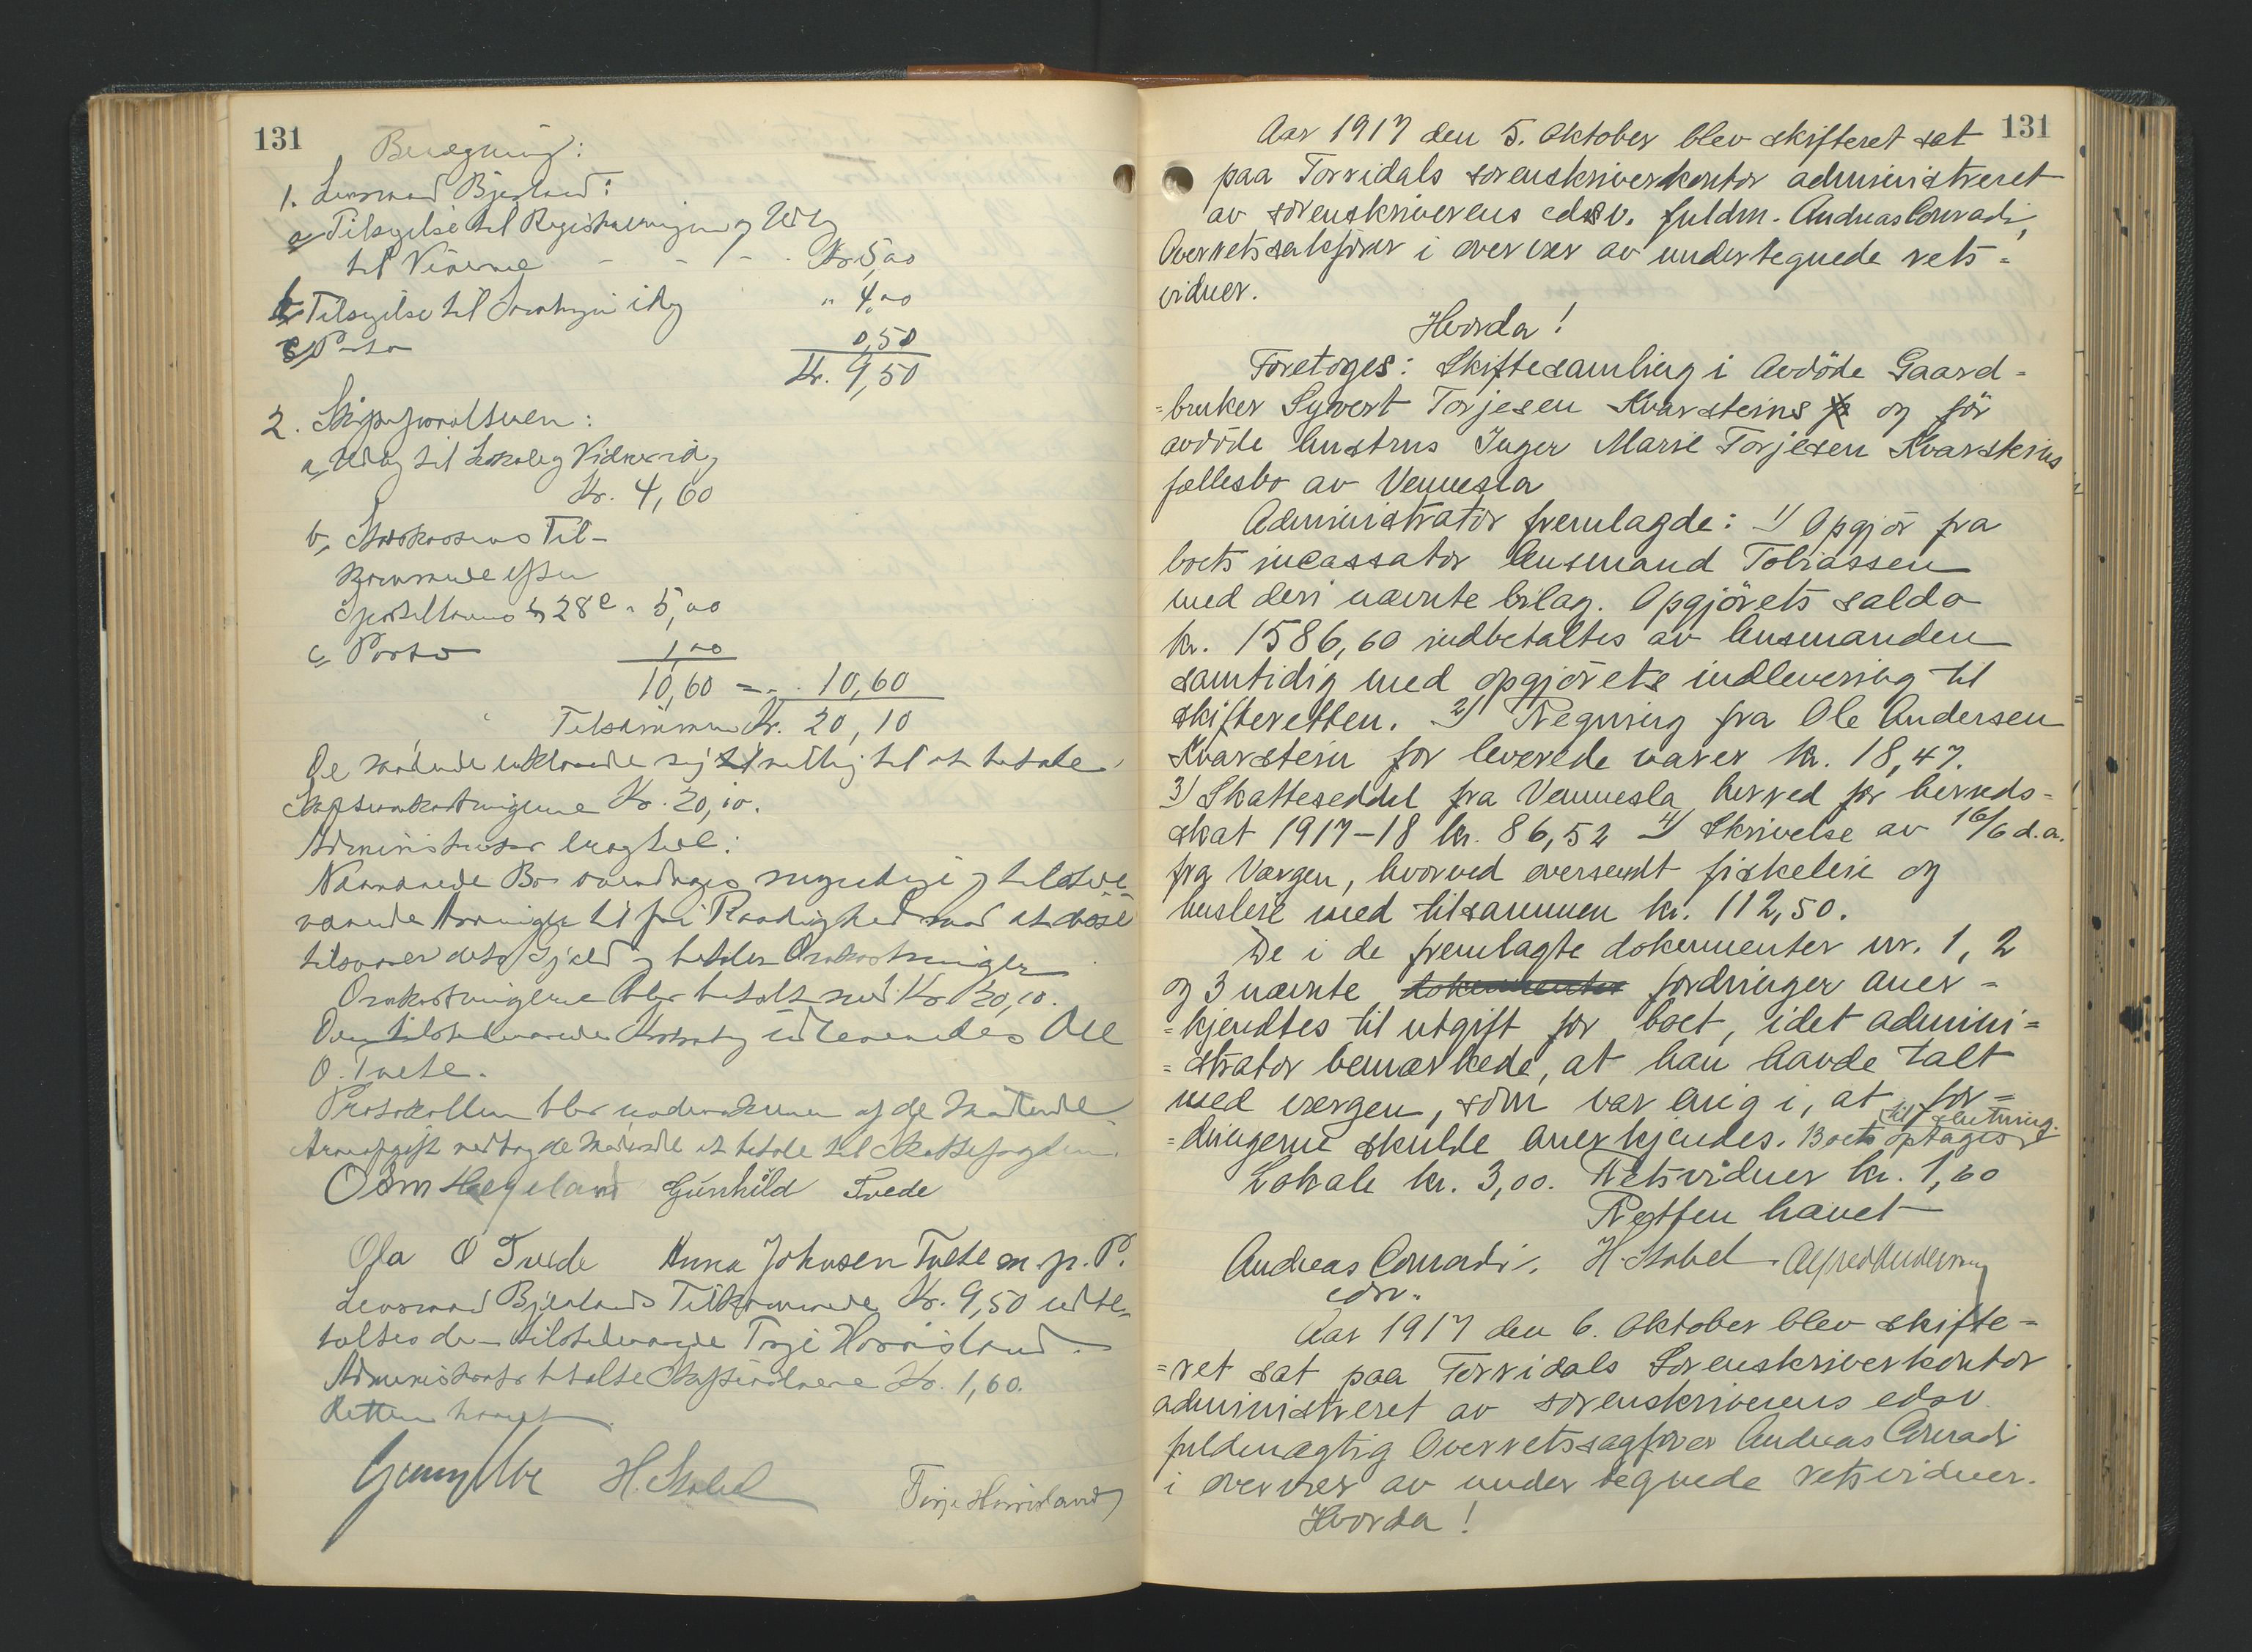 131
Beregning:
1. Lensmand Bjerland:
a, Tilsigelse til Registreringen og Utlæg
til Vidnerne - - - Kr. 5,00
b, Tilsigelse til Samlingen idag " 4,00
c, Porto 0,50
Kr. 9,50
2. Skifteforvalteren:
a, Utlæg til Lokale og Vidner idag
Kr. 4,60
b, Statskassens Til-
kommende efter
Sportelloven § 28c " 5,00
c, Porto 1,00
10,60 = - 10,60
Tilsammen Kr. 20,10
De mødende erklærede sig villig til at betale
Skifteomkostningerne Kr. 20,10.
Administrator bragte
Nærværende Bo overdrages myndige og tilstede-
værende Arvinger til fri Raadighed mod at disse
tilsvarer dets Gjæld og betaler Omkostninger
Omkostningerne blev betalt med Kr. 20,10.
Den tilstedeværende utleveredes Ole
O. Tvete.
Protokollen blev af de mødende
Arveafgift vedtog de mødende at betale til Skattefogden.
Osm Hægeland Gunhild Tvede
Ola O Tvede Anna Johnsen Tvete m. p. P.
Lensmand Bjerlands Tilkommende Kr. 9,50 udbe-
taltes den tilstedeværende Terje Horrisland.
Administrator betalte Skiftevidnerne Kr. 1,60.
Retten hævet
H. Stabel Terje Horrisland
131
Aar 1917 den 5. Oktober blev skifteret sat
paa Torridals sorenskriverkontor administreret
av sorenskriverens edsv. fuldm. Andreas Conradi,
Overretssakfører i overvær av undertegnede rets=
vidner.
Hvorda!
Foretoges: Skiftesamling i Avdöde Gaard=
=bruker Syvert Torjesen Kvarsteins og för
avdöde hustrus Inger Marie Torjesen Kvarsteins
fællesbo av Vennesla
Administrator fremlagde: 1) Opgjör fra
boets incassator lensmand Tobiassen
med deri nævnte bilag. Opgjörets saldo
kr. 1586,60 indbetaltes av lensmanden
samtidig med opgjörets indlevering til
skifteretten. 2) Regning fra Ole Andersen
Kvarstein for leverede varer kr. 18,47.
3) Skatteseddel fra Vennesla herred for herreds=
skat 1917-18 kr. 86,52 4) Skrivelse av 16/6 d.a.
fra Værgen, hvorved oversendt fiskeleie og
husleie med tilsammen kr. 112,50.
De i de fremlagte dokumenter nr. 1, 2
og 3 nævnte dokumenter fordringer aner=
=kjendtes til utgift for boet, idet admini=
=strator bemærkede, at han havde talt
med værgen, som var enig i, at for=
=dringerne skulde anerkjendes. Boets optages til slutning.
Lokale kr. 3,00. Retsvidner kr. 1,60
Retten hævet
Andreas Conradi. H. Stabel. Alfred Andersen
edsv.
Aar 1917 den 6. Oktober blev skifte=
=ret sat paa Torridals Sorenskriverkontor
administreret av sorenskriverens edsv.
fuldmægtig Overretssagfører Andreas Conradi
i overvær av undertegnede retsvidner.
Hvorda!